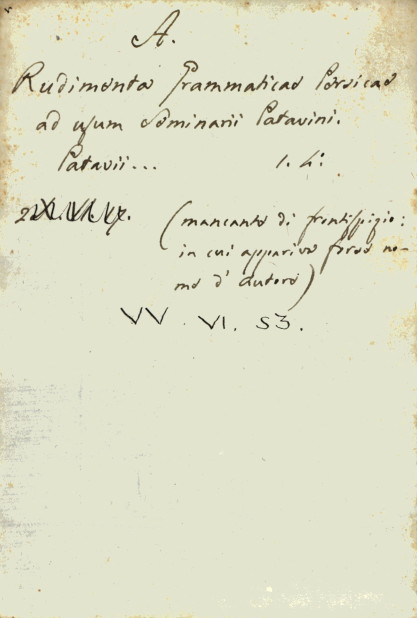 A.
Rudimenta Grammaticae Persicae
ad usum Seminarii Patavini.
Patavii... 1. 4.º
(mancante di frontispizio:
in cui appariva forse no-
me d' autore)
VV. VI. 53.